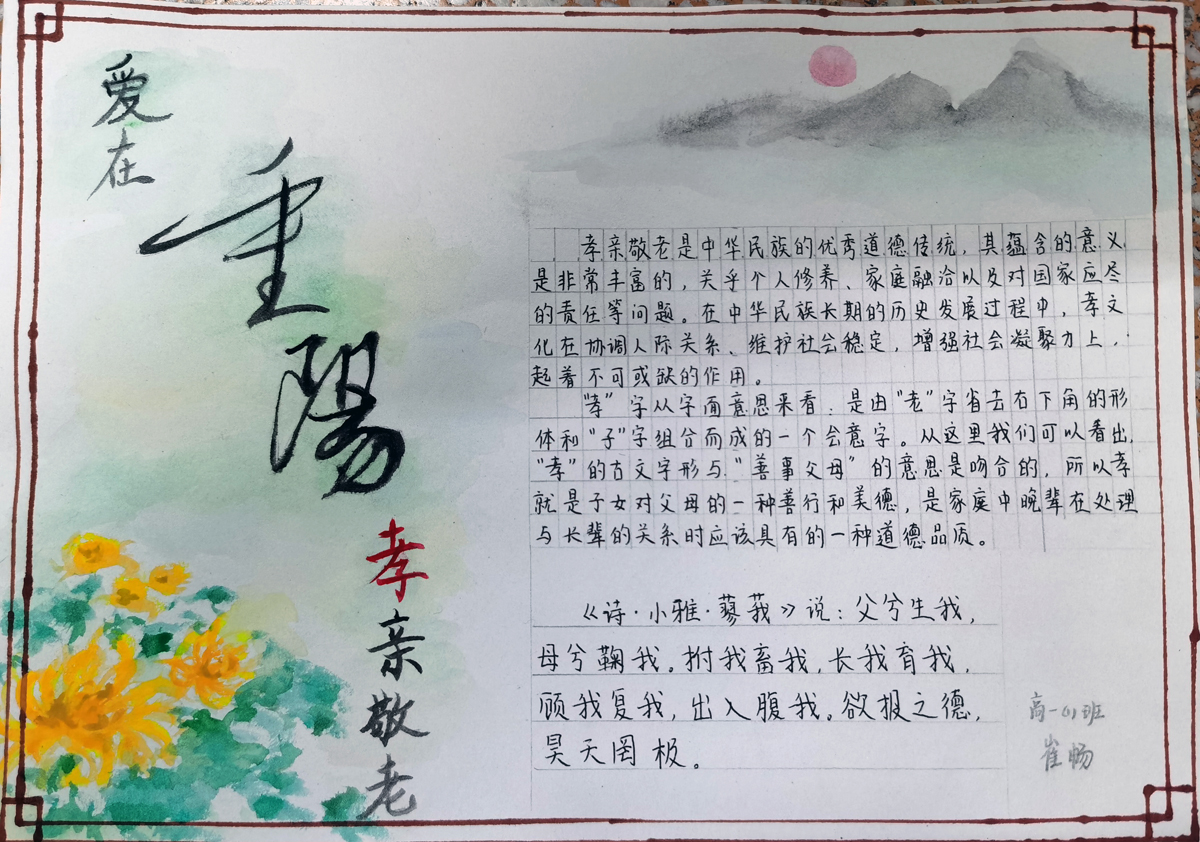 爱在
重陽
孝亲敬老
孝亲敬老是中华民族的优秀道德传统，其蕴含的意义
是非常丰富的，关乎个人修养、家庭融洽以及对国家应尽
的责任等问题。在中华民族长期的历史发展过程中，孝文
化在协调人际关系、维护社会稳定，增强社会凝聚力上，
起着不可或缺的作用。
“孝”字从字面意思来看，是由“老”字省去右下角的形
体和“子”字组合而成的一个会意字。从这里我们可以看出，
“孝”的古文字形与“善事父母”的意思是吻合的，所以孝
就是子女对父母的一种善行和美德，是家庭中晚辈在处理
与长辈的关系时应该具有的一种道德品质。
《诗·小雅·蓼莪》说：父兮生我，
母兮鞠我。拊我畜我，长我育我，
顾我复我，出入腹我。欲报之德，
昊天罔极。
高一01班
崔畅